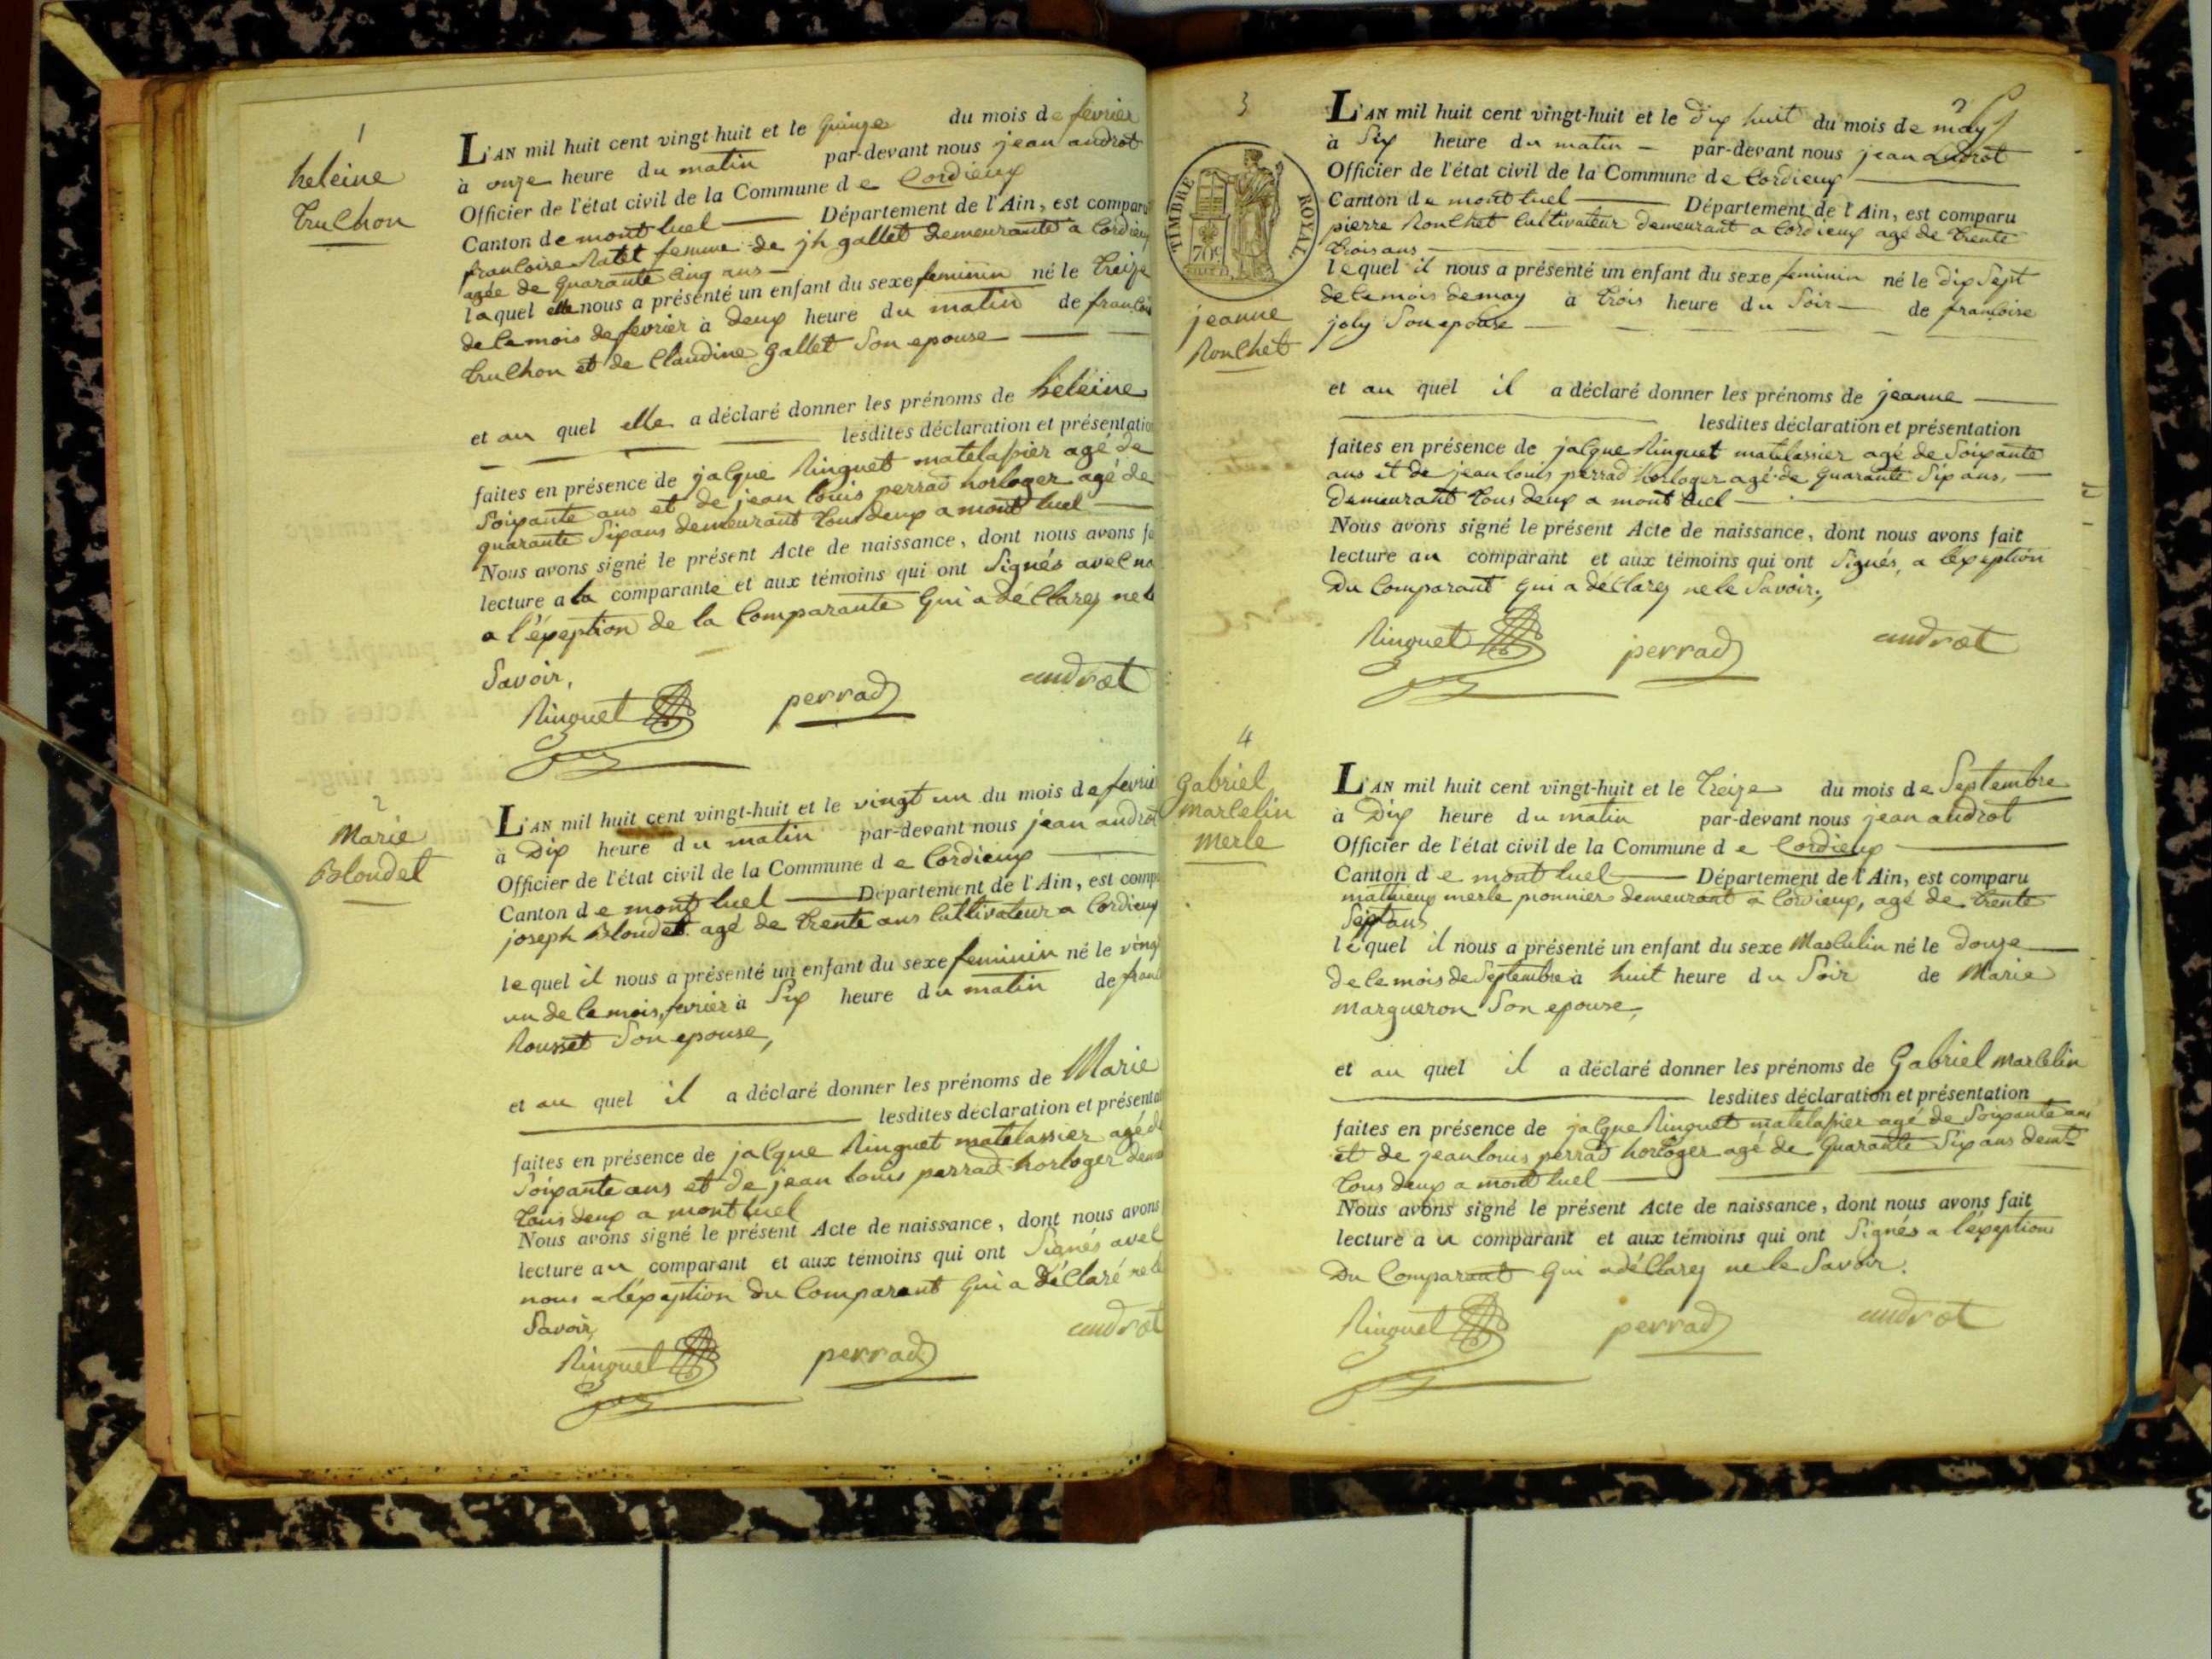 1
heleine
truchon
L'AN mil huit cent vingt-huit et le quinze du mois de fevrier
à onze heure du matin par-devant nous jean androt
Officier de l'état civil de la Commune de Cordieux
Canton de mont luel Département de l'Ain, est comparu
francoise Ratet femme de jh gallet demeurante a Cordieux
agée de quarante cinq ans
laquel elle nous a présenté un enfant du sexe feminin né le treize
de ce mois de fevrier à deux heure du matin de francois
truchon et de Claudine gallet son epouse
et au quel elle a déclaré donner les prénoms de heleine
lesdites déclaration et présentation
faites en présence de jacque Ringuet matelassier agé de
soixante ans et de jean louis perrad horloger agé de
quarante six ans demeurant tous deux a mont luel
Nous avons signé le présent Acte de naissance, dont nous avons fa
lecture a la comparante et aux témoins qui ont signés avec no
a l'exeption de la Comparante qui a déClarez ne le
savoir,
Ringuet perrad androt
2
Marie
Blondet
L'AN mil huit cent vingt-huit et le vingt un du mois de fevrie
à Dix heure du matin par-devant nous jean androt
Officier de l'état civil de la Commune de Cordieux
Canton de mont luel Département de l'Ain, est compa
joseph Blondet agé de trente ans Cultivateur a Cordieux
lequel il nous a présenté un enfant du sexe feminin né le vingt
un de ce mois, fevrier à six heure du matin de franc
Rousset son epouse,
et au quel il a déclaré donner les prénoms de Marie
lesdites déclaration et présentat
faites en présence de jacque Ringuet matelassier agé d
soixante ans et de jean louis perrad horloger dem
tous deux a mont luel
Nous avons signé le présent Acte de naissance, dont nous avons
lecture au comparant et aux témoins qui ont signés avec
nous a l'exeption du Comparant qui a déClaré ne le
savoir,
Ringuet perrad androt
3
2
TIMBRE ROYAL
70c
jeanne
Ronchet
L'AN mil huit cent vingt-huit et le dix huit du mois de may
à six heure du matin par-devant nous jean androt
Officier de l'état civil de la Commune de Cordieux
Canton de mont luel Département de l'Ain, est comparu
pierre Ronchet Cultivateur demeurant a Cordieux agé de trente
trois ans
lequel il nous a présenté un enfant du sexe feminin né le dix sept
de ce mois de may à trois heure du soir de francoise
joly son epouse
et au quel il a déclaré donner les prénoms de jeanne
lesdites déclaration et présentation
faites en présence de jacque Ringuet matelassier agé de soixante
ans et de jean louis perrad horloger agé de quarante six ans,
demeurant tous deux a mont luel
Nous avons signé le présent Acte de naissance, dont nous avons fait
lecture au comparant et aux témoins qui ont signés, a l'exeption
Du Comparant qui a déClarez ne le savoir,
Ringuet perrad androt
4
Gabriel
marcelin
merle
L'AN mil huit cent vingt-huit et le treize du mois de septembre
à Dix heure du matin par-devant nous jean androt
Officier de l'état civil de la Commune de Cordieux
Canton de mont luel Département de l'Ain, est comparu
mathieux merle pionnier demeurant a Cordieux, agé de trente
sept ans
lequel il nous a présenté un enfant du sexe Masculin né le douze
de ce mois de septembre à huit heure du soir de Marie
margueron son epouse,
et au quel il a déclaré donner les prénoms de Gabriel marcelin
lesdites déclaration et présentation
faites en présence de jacque Ringuet matelassier agé de soixante ans
et de jean louis perrad horloger agé de quarante six ans demt
tous deux a mont luel
Nous avons signé le présent Acte de naissance, dont nous avons fait
lecture au comparant et aux témoins qui ont signés a l'exeption
Du Comparant qui a déClarez ne le savoir.
Ringuet perrad androt